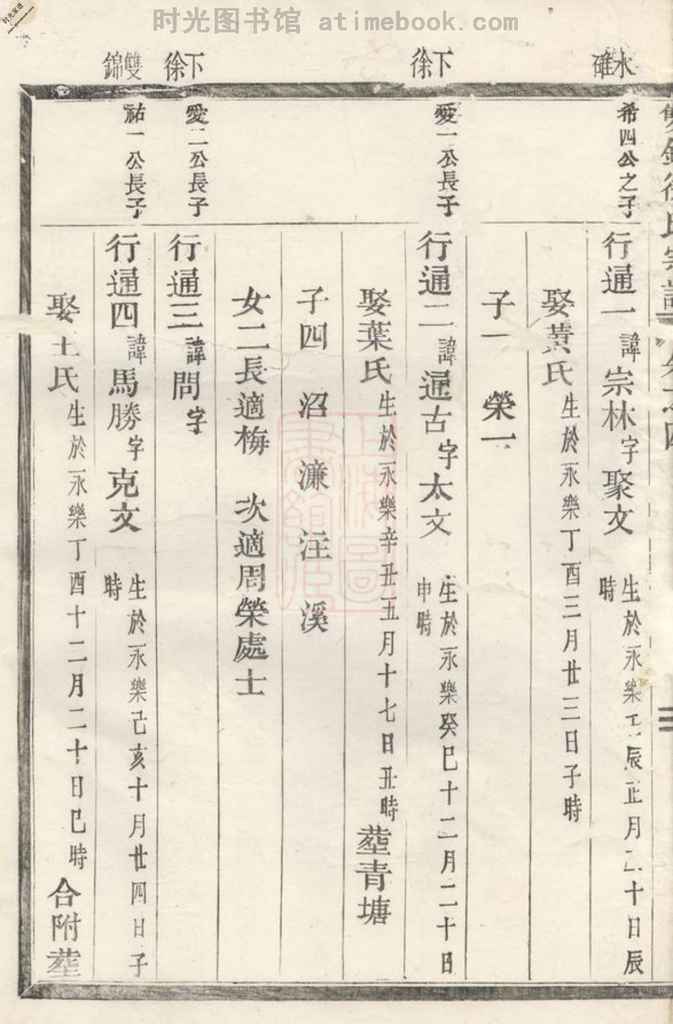 时光图书馆 atimebook.com
水碓
下徐
下徐
雙錦
希四公之子
行通一諱崇林字聚文生於永樂壬辰正月二十日辰時
娶黃氏生於永樂丁酉三月廿三日子時
子一 榮一
愛一公長子
行通二諱通古字太文生於永樂癸巳十二月二十日申時
娶葉氏生於永樂辛丑五月十七日丑時塟青塘
子四 沼 濂 汪 溪
女二長適梅 次適周榮處士
愛二公長子
行通三諱問字
祐一公長子
行通四諱馬勝字克文生於永樂己亥十月廿四日子時
娶王氏生於永樂丁酉十二月二十日巳時合附塟